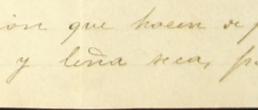 ión que hacen de p
y leña seca, pa